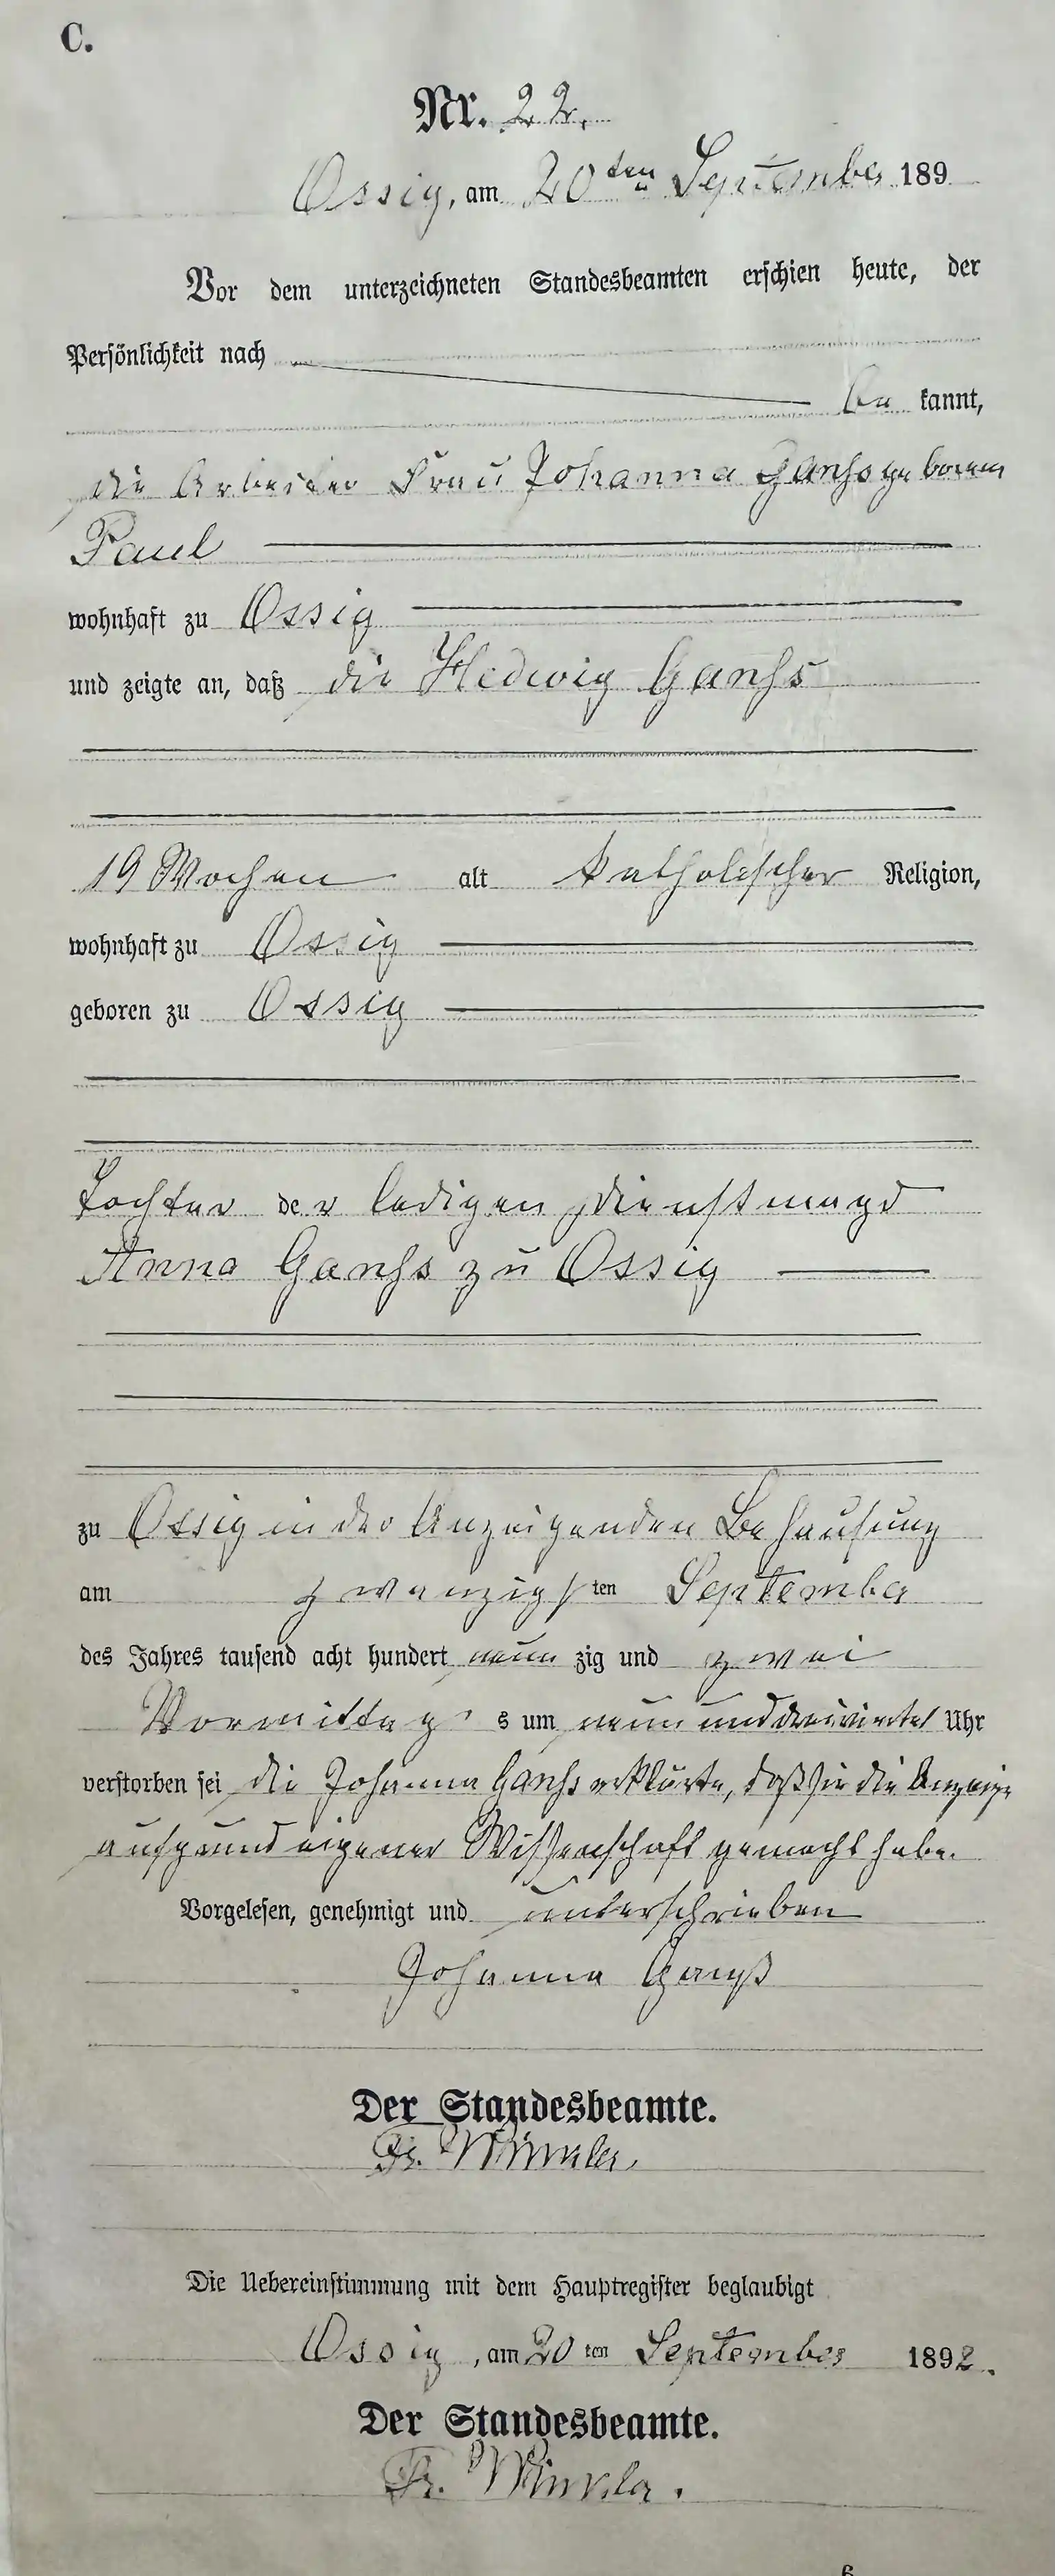 C.
Nr. 22.
Ossig, am 20ten September 189
Vor dem unterzeichneten Standesbeamten erschien heute, der
Persönlichkeit nach
be kannt,
die Arbeiter Frau Johanna Ganhs geborene
Paul
wohnhaft zu Ossig
und zeigte an, daß die Hedwig Ganhs
19 Wochen alt katholischer Religion,
wohnhaft zu Ossig
geboren zu Ossig
Tochter der ledigen Dienstmagd
Anna Ganhs zu Ossig
zu Ossig in der Anzeigenden Behausung
am zwanzigsten September
des Jahres tausend acht hundert neunzig und zwei
Vormittags um neun und dreiviertel Uhr
verstorben sei die Johanna Ganhs erklärte, daß sie die Anzeige
aufgrund eigener Wissenschaft gemacht habe.
Vorgelesen, genehmigt und unterschrieben
Johanna Ganß
Der Standesbeamte.
Fr. Winkler.
Die Uebereinstimmung mit dem Hauptregister beglaubigt
Ossig, am 20ten September 1892.
Der Standesbeamte.
Fr. Winkler.
6